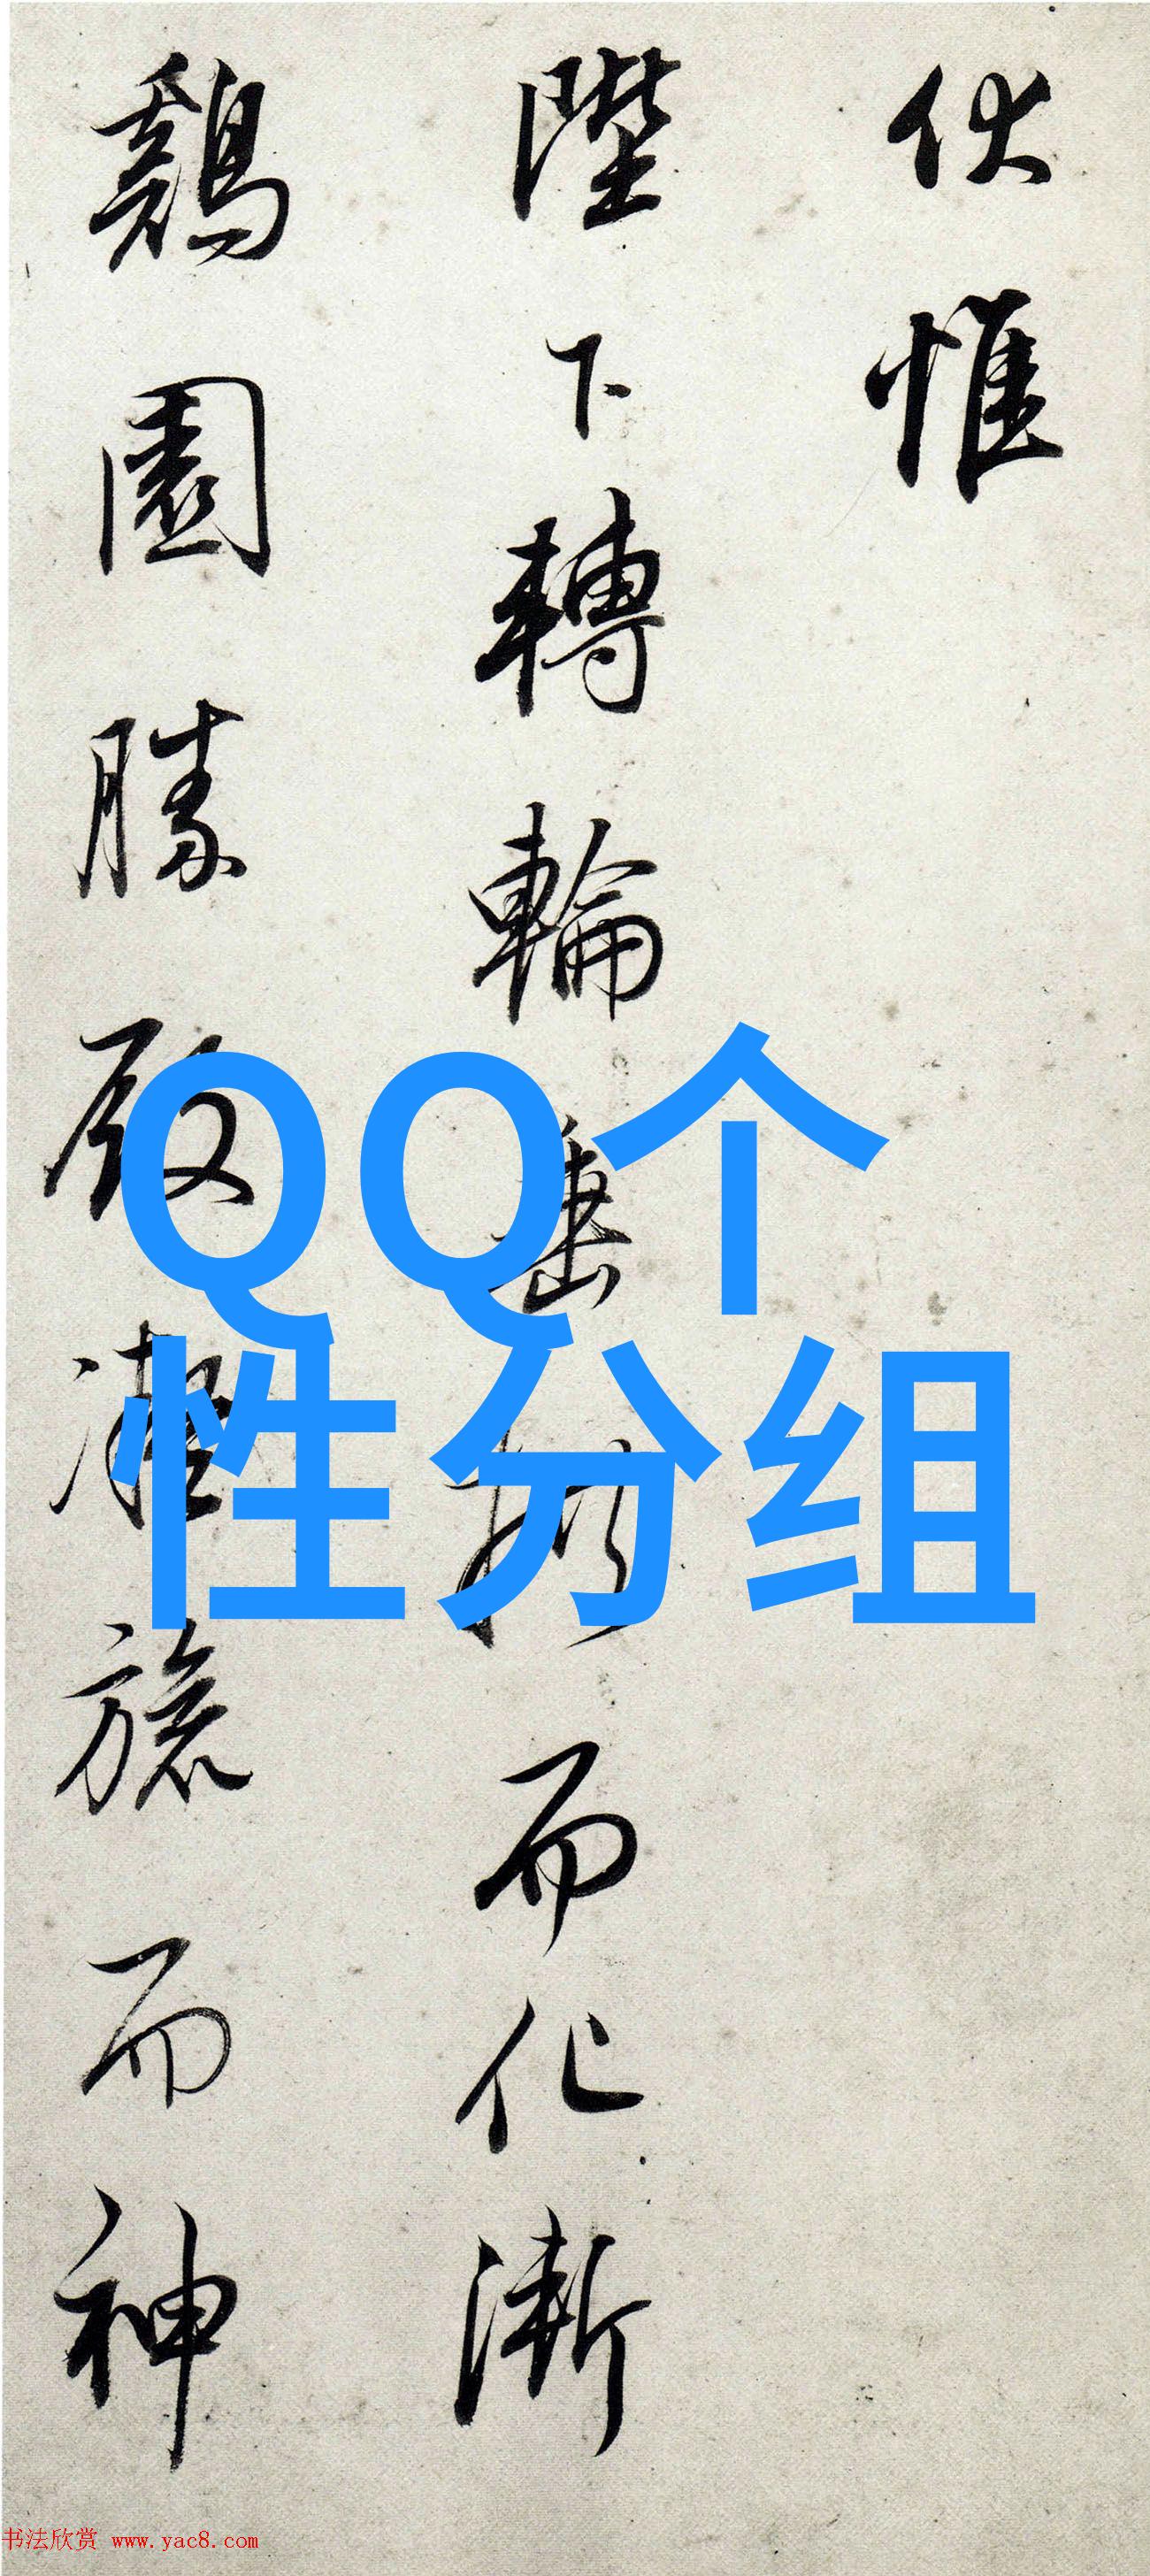 伏惟
陛下轉輪垂拱而化漸
鷄園勝殿凝旒而神
QQ个
性分组
书法欣赏 www.yac8.com